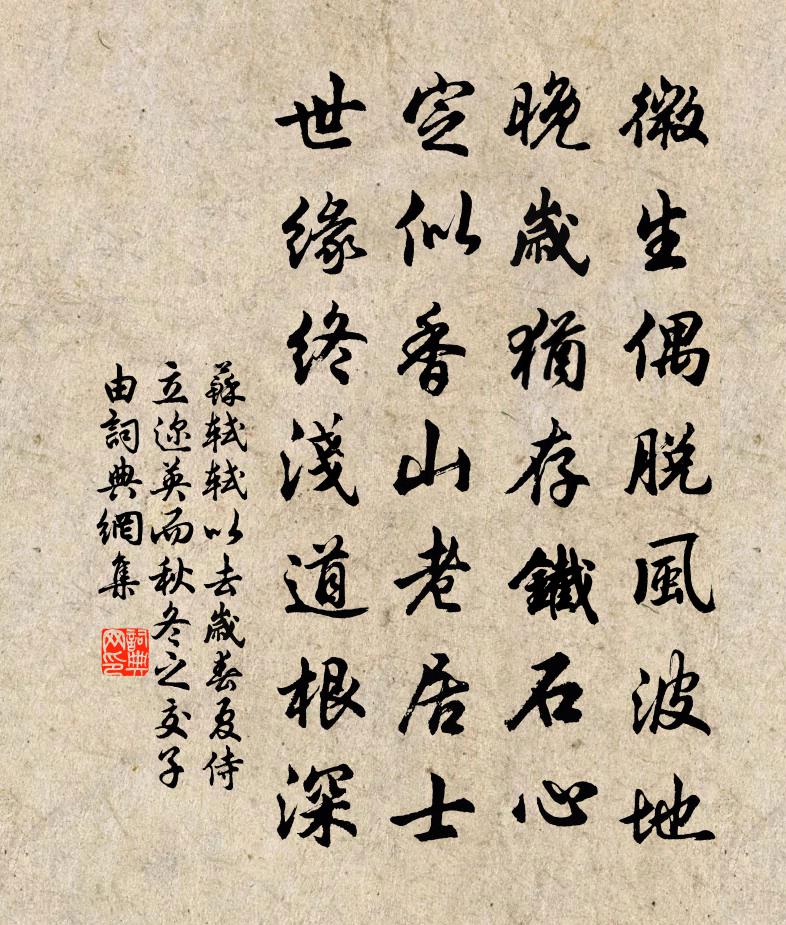 微生偶脫風波地
晚歲猶存鐵石心
定似香山老居士
世緣終淺道根深
蘇軾軾以去歲春夏侍
立迩英而秋冬之交子
由詞典網集
詞典
网印